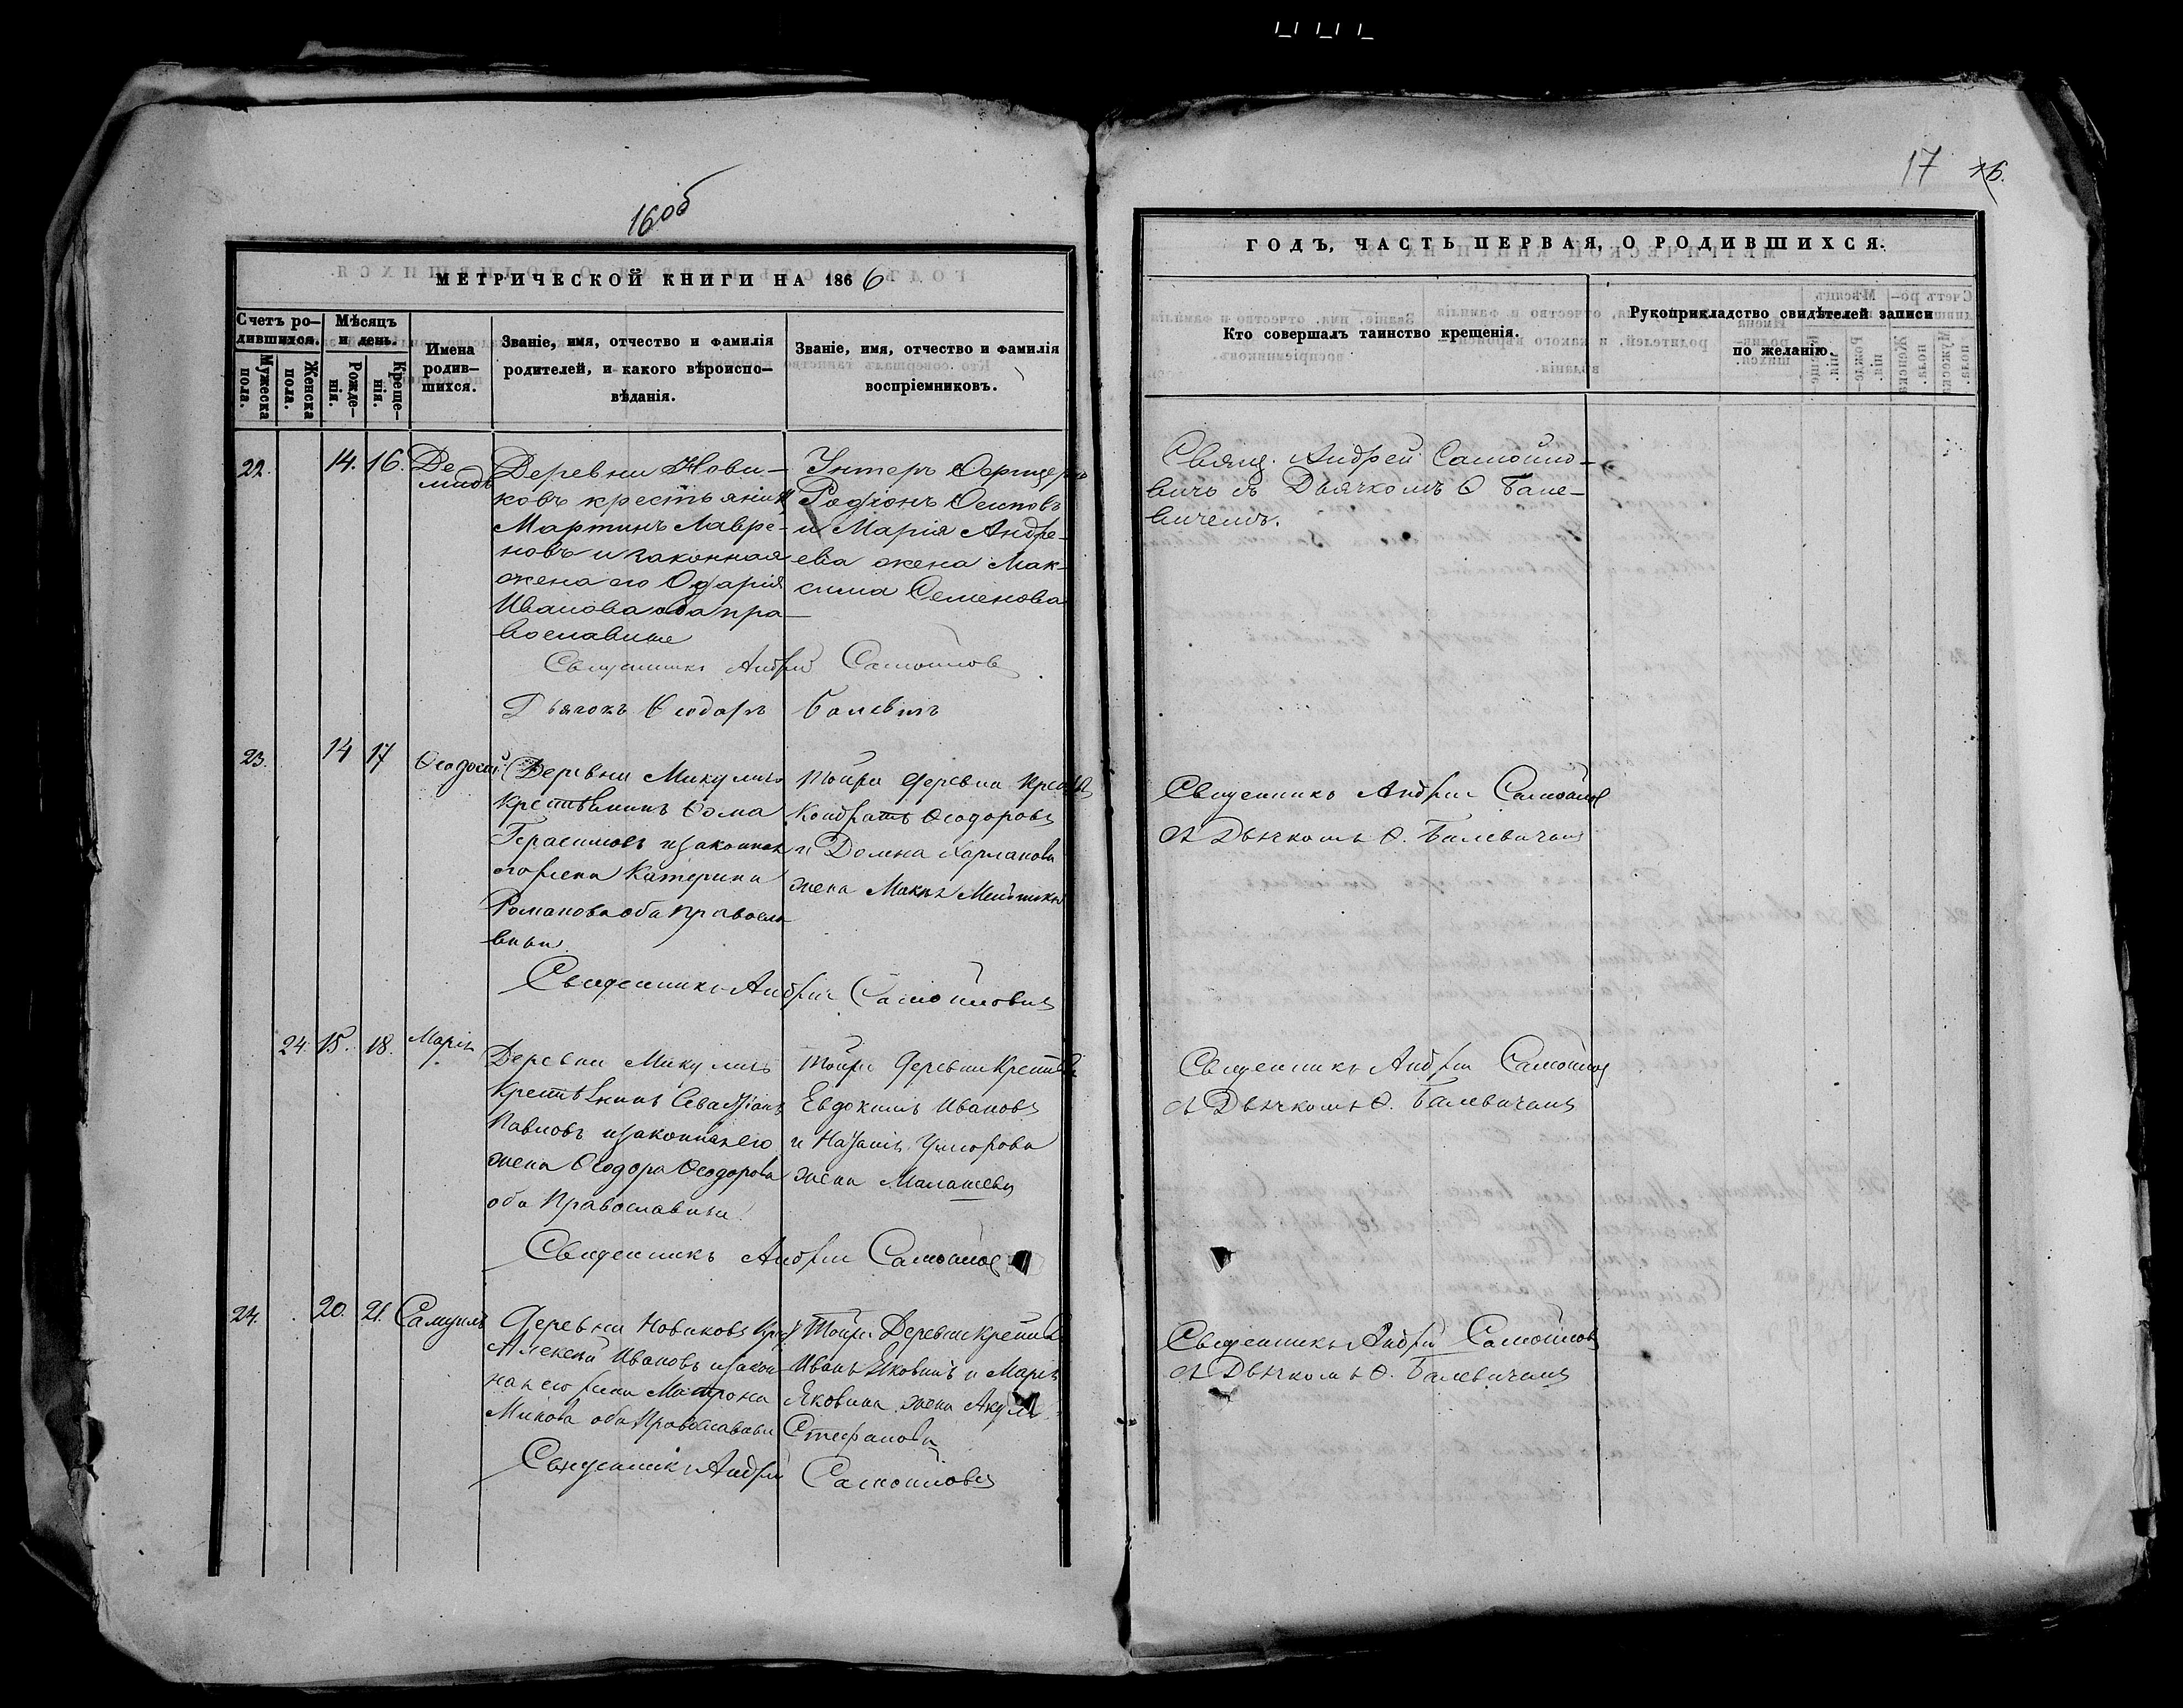 16об
МЕТРИЧЕСКОЙ КНИГИ НА 1866
Счетъ ро-
дившихся.
Мужеска
пола.
Женска
пола.
Мѣсяцъ
и день.
Рожде-
нія.
Креще-
нія.
Имена
родив-
шихся.
Званіе, имя, отчество и фамилія
родителей, и какого вѣроиспо-
вѣданія.
Званіе, имя, отчество и фамилія
воспріемниковъ.
22. 14. 16. Де
мидъ
Деревни Нови-
ковъ крестьянинъ
Мартинъ Лавре-
новъ и законная
жена его Ѳдарія
Иванова оба пра-
вославные
Унтеръ Ѳерицеръ
Родіонъ Осиповъ
и Марія Андре-
ева жена Мак-
сима Семенова
Священникъ Андрей Самойлов
Дьячокъ Ѳеодоръ Балевичъ
23. 14 17 Ѳеодосій
Деревни Микуличъ
крестьянинъ Ѳома
Герасимовъ изаконная
его жена Катерина
Романова оба правосла
вныи
Тойже деревни
Кондратъ Ѳеодоровъ
и Домна Харланова
жена
Священникъ Андрей Самойловичъ
24. 15. 18. Марія
Деревни Микуличъ
крестьянинъ Севастіанъ
Павловъ изаконная его
жена Ѳеодора Ѳеодорова
оба Православныи
Тойже деревни
Евдокимъ Ивановъ
и
жена
Священникъ Андрей Самойлов
24. 20. 21. Самуилъ
Деревни Новиковъ кр
Алексѣй Ивановъ изакон
ная его жена Матрона
Минова оба Православныи
Тойже Деревни
Иванъ Яковинъ и Марія
Яковина жена
Стефанова
Священникъ Андрей Самойловъ
17 16.
ГОДЪ, ЧАСТЬ ПЕРВАЯ, О РОДИВШИХСЯ.
Кто совершалъ таинство крещенія.
Рукоприкладство свидѣтелей записи
по желанію.
Свящ. Андрей Самойло-
вичъ съ Дьячкомъ Ѳ Бале-
вичемъ.
Священникъ Андрей Самойлов
съ Дьячкомъ Ѳ. Балевичемъ
Священникъ Андрей Самойлов
съ Дьячкомъ Ѳ. Балевичемъ
Священникъ Андрей Самойлов
съ Дьячкомъ Ѳ. Балевичемъ